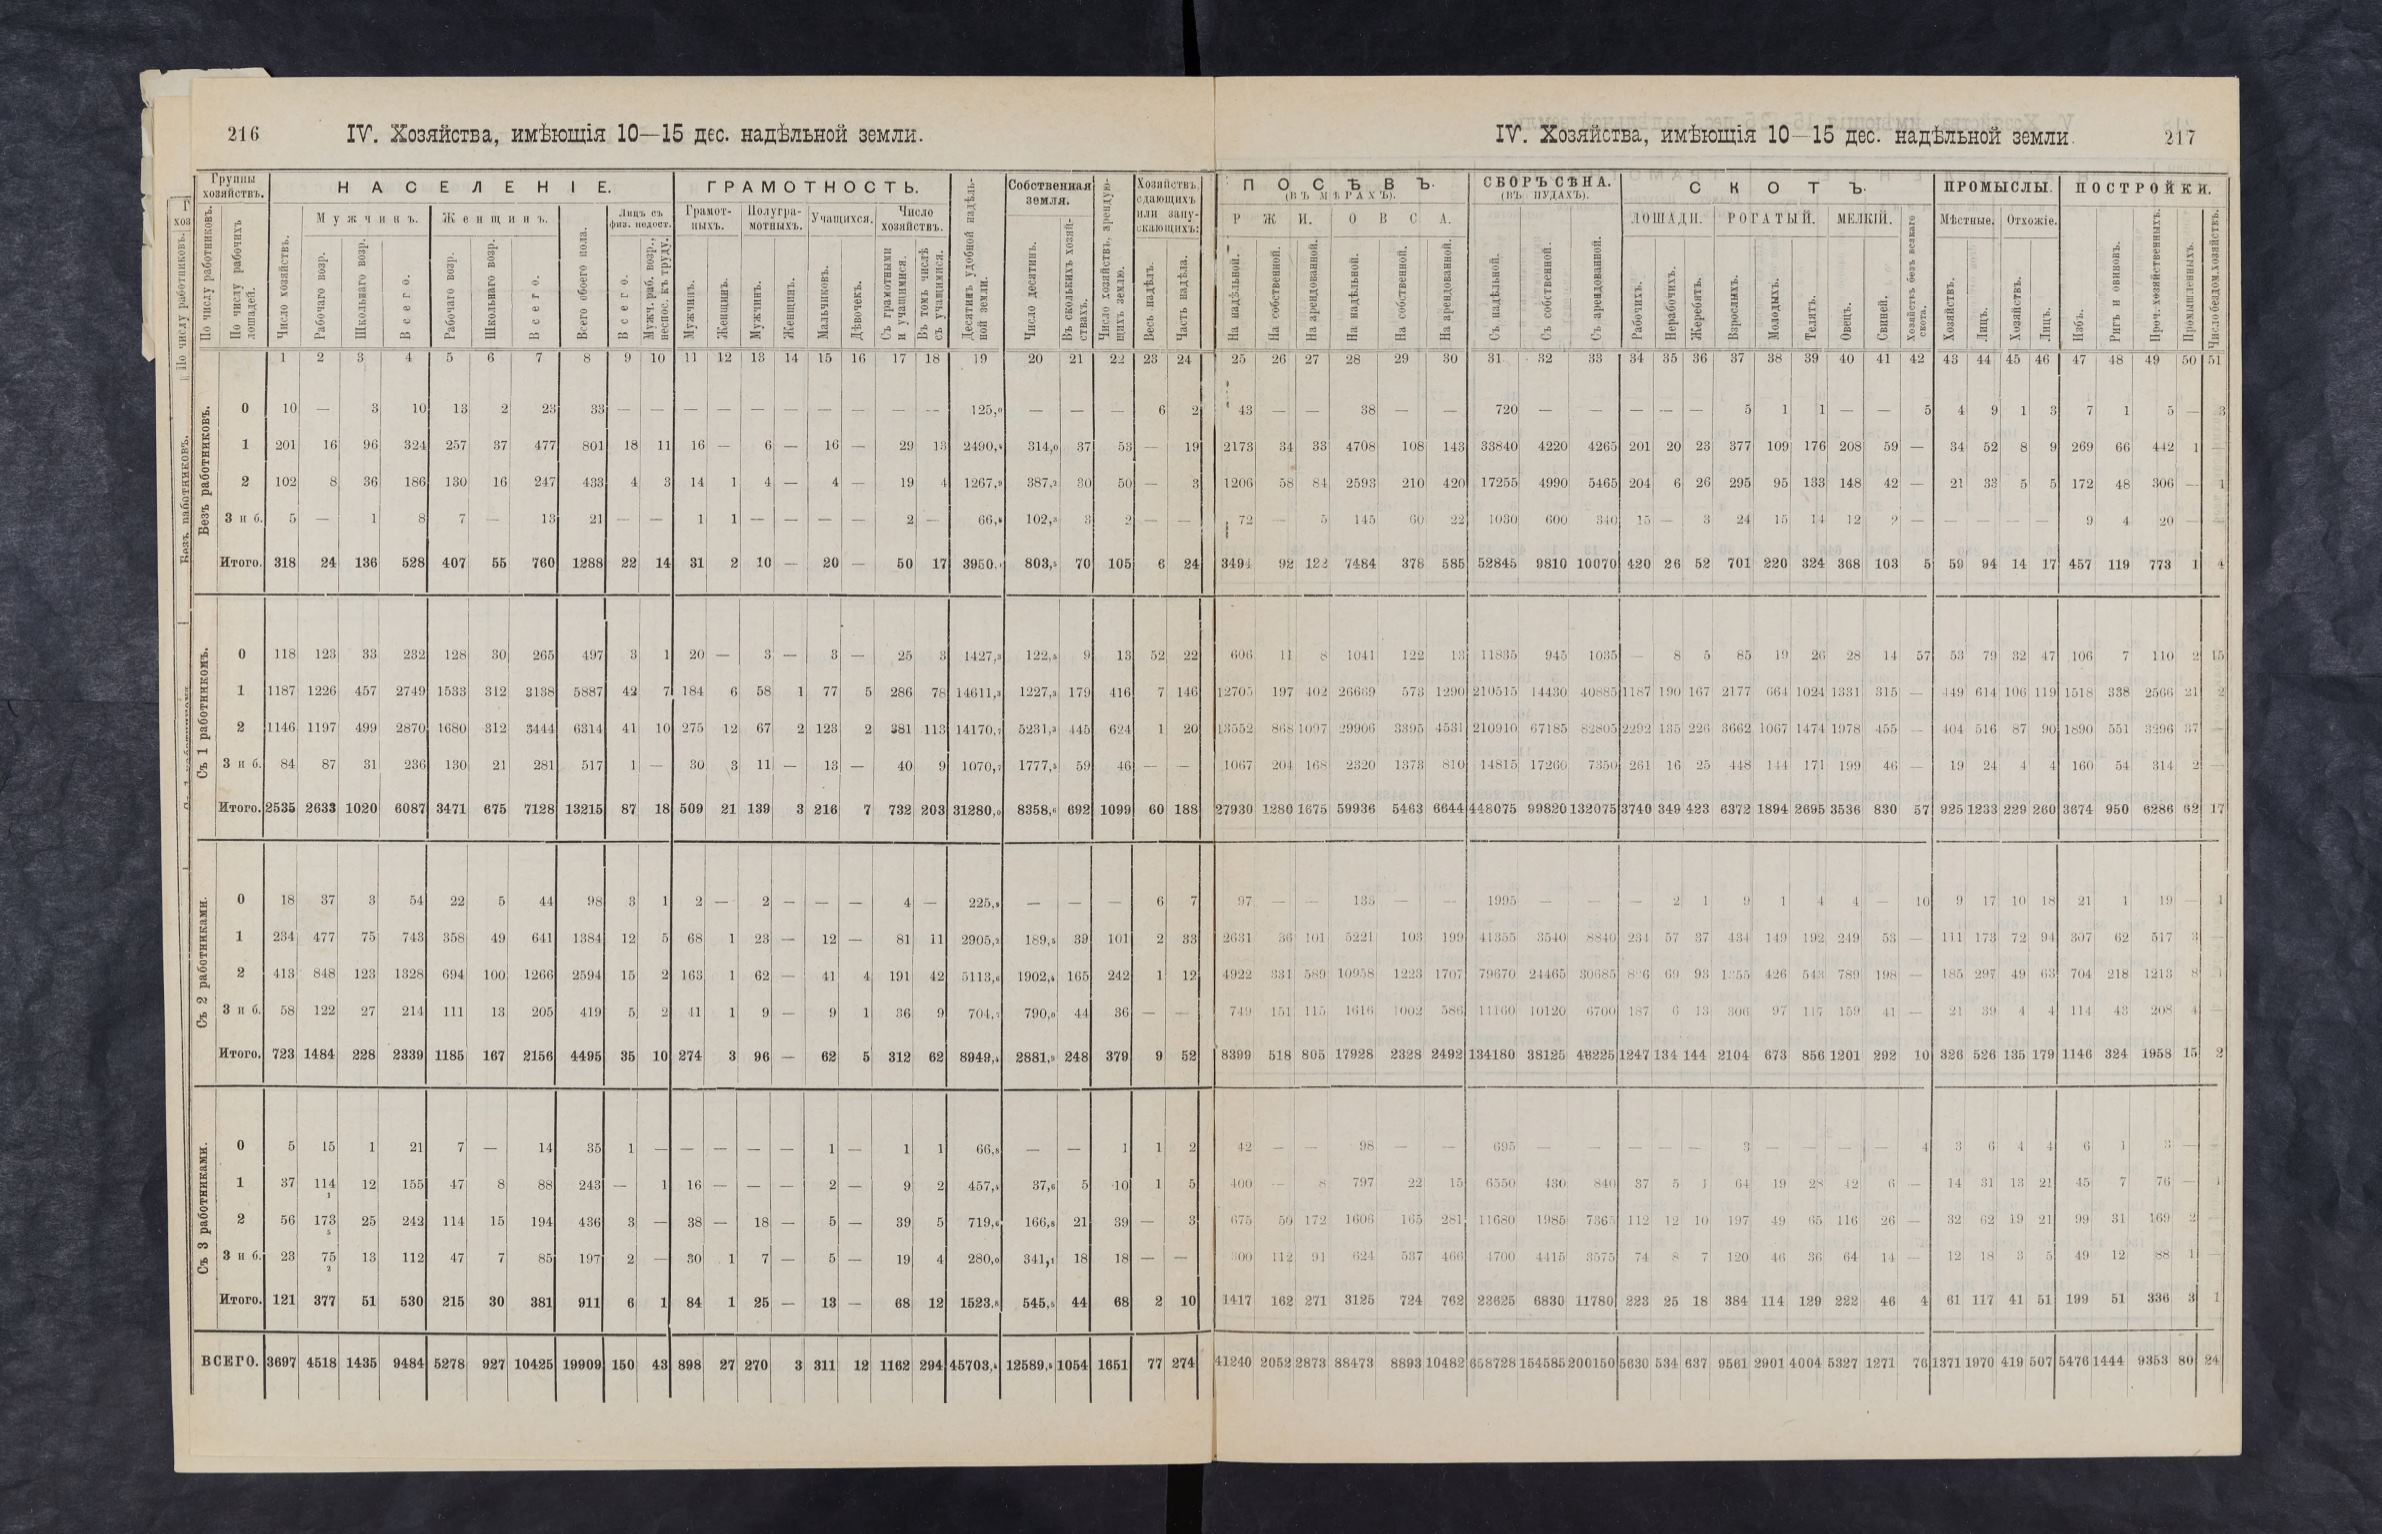 216
IV. Хозяйства, имѣющія 10—15 дес. надѣльной земли.
Группы хозяйствъ.
По числу работниковъ.
По числу рабочихъ лошадей.
НАСЕЛЕНІЕ.
Число хозяйствъ.
Мужчинъ.
Рабочаго возр.
Школьнаго возр.
Всего.
Женщинъ.
Рабочаго возр.
Школьнаго возр.
Всего.
Всего обоего пола.
Лицъ съ физ. недост.
Всего.
Мужч. раб. возр., неспос. къ труду.
ГРАМОТНОСТЬ.
Грамотныхъ.
Мужчинъ.
Женщинъ.
Полуграмотныхъ.
Мужчинъ.
Женщинъ.
Учащихся.
Мальчиковъ.
Дѣвочекъ.
Число хозяйствъ.
Съ грамотными и учащимися.
Въ томъ числѣ съ учащимися.
Десятинъ удобной надѣльной земли.
Собственная земля.
Число десятинъ.
Въ сколькихъ хозяйствахъ.
Число хозяйствъ, арендующихъ землю.
Хозяйствъ, сдающихъ или запускающихъ:
Весь надѣлъ.
Часть надѣла.
1 2 3 4 5 6 7 8 9 10 11 12 13 14 15 16 17 18 19 20 21 22 23 24
Безъ работниковъ.
0 10 — 3 10 13 2 23 33 — — — — — — — — — — 125,0 — — — 6 2
1 201 16 96 324 257 37 477 801 18 11 16 — 6 — 16 — 29 13 2490,4 314,0 37 53 — 19
2 102 8 36 186 130 16 247 433 4 3 14 1 4 — 4 — 19 4 1267,9 387,2 30 50 — 3
3 и б. 5 — 1 8 7 — 13 21 — — 1 1 — — — — 2 — 66,8 102,3 3 2 — —
Итого. 318 24 136 528 407 55 760 1288 22 14 31 2 10 — 20 — 50 17 3950,1 803,5 70 105 6 24
Съ 1 работникомъ.
0 118 123 33 232 128 30 265 497 3 1 20 — 3 — 3 — 25 3 1427,3 122,5 9 13 52 22
1 1187 1226 457 2749 1533 312 3138 5887 42 7 184 6 58 1 77 5 286 78 14611,3 1227,3 179 416 7 146
2 1146 1197 499 2870 1680 312 3444 6314 41 10 275 12 67 2 123 2 381 113 14170,7 5231,3 445 624 1 20
3 и б. 84 87 31 236 130 21 281 517 1 — 30 3 11 — 13 — 40 9 1070,7 1777,5 59 46 — —
Итого. 2535 2633 1020 6087 3471 675 7128 13215 87 18 509 21 139 3 216 7 732 203 31280,0 8358,6 692 1099 60 188
Съ 2 работниками.
0 18 37 3 54 22 5 44 98 3 1 2 — 2 — — — 4 — 225,9 — — — 6 7
1 234 477 75 743 358 49 641 1384 12 5 68 1 23 — 12 — 81 11 2905,2 189,5 39 101 2 33
2 413 848 123 1328 694 100 1266 2594 15 2 163 1 62 — 41 4 191 42 5113,6 1902,4 165 242 1 12
3 и б. 58 122 27 214 111 13 205 419 5 2 41 1 9 — 9 1 36 9 704,7 790,0 44 36 — —
Итого. 723 1484 228 2339 1185 167 2156 4495 35 10 274 3 96 — 62 5 312 62 8949,4 2881,9 248 379 9 52
Съ 3 работниками.
0 5 15 1 21 7 — 14 35 1 — — — — — 1 — 1 1 66,8 — — 1 1 2
1 37 114 12 155 47 8 88 243 — 1 16 — — — 2 — 9 2 457,4 37,6 5 10 1 5
1
2 56 173 25 242 114 15 194 436 3 — 38 — 18 — 5 — 39 5 719,6 166,8 21 39 — 3
5
3 и б. 23 75 13 112 47 7 85 197 2 — 30 1 7 — 5 — 19 4 280,0 341,1 18 18 — —
2
Итого. 121 377 51 530 215 30 381 911 6 1 84 1 25 — 13 — 68 12 1523,8 545,5 44 68 2 10
ВСЕГО. 3697 4518 1435 9484 5278 927 10425 19909 150 43 898 27 270 3 311 12 1162 294 45703,4 12589,5 1054 1651 77 274
IV. Хозяйства, имѣющія 10—15 дес. надѣльной земли.
217
ПОСѢВЪ.
(ВЪ МѢРАХЪ).
РЖИ.
На надѣльной.
На собственной.
На арендованной.
ОВСА.
На надѣльной.
На собственной.
На арендованной.
СБОРЪ СѢНА.
(ВЪ ПУДАХЪ).
Съ надѣльной.
Съ собственной.
Съ арендованной.
СКОТЪ.
ЛОШАДИ.
Рабочихъ.
Нерабочихъ.
Жеребятъ.
РОГАТЫЙ.
Взрослыхъ.
Молодыхъ.
Телятъ.
МЕЛКІЙ.
Овецъ.
Свиней.
Хозяйствъ безъ всякаго скота.
ПРОМЫСЛЫ.
Мѣстные.
Хозяйствъ.
Лицъ.
Отхожіе.
Хозяйствъ.
Лицъ.
ПОСТРОЙКИ.
Избъ.
Ригъ и овиновъ.
Проч. хозяйственныхъ.
Промышленныхъ.
Число бездом. хозяйствъ.
25 26 27 28 29 30 31 32 33 34 35 36 37 38 39 40 41 42 43 44 45 46 47 48 49 50 51
43 — — 38 — — 720 — — — — — 5 1 1 — — 5 4 9 1 3 7 1 5 — 3
2173 34 33 4708 108 143 33840 4220 4265 201 20 23 377 109 176 208 59 — 34 52 8 9 269 66 442 1 —
1206 58 84 2593 210 420 17255 4990 5465 204 6 26 295 95 133 148 42 — 21 33 5 5 172 48 306 — 1
72 — 5 145 60 22 1030 600 340 15 — 3 24 15 14 12 2 — — — — — 9 4 20 —
3494 92 122 7484 378 585 52845 9810 10070 420 26 52 701 220 324 368 103 5 59 94 14 17 457 119 773 1 4
606 11 8 1041 122 13 11835 945 1035 — 8 5 85 19 26 28 14 57 53 79 32 47 106 7 110 2 15
12705 197 402 26669 573 1290 210515 14430 40885 1187 190 167 2177 664 1024 1331 315 — 449 614 106 119 1518 338 2566 21 2
13552 868 1097 29906 3395 4531 210910 67185 82805 2292 135 226 3662 1067 1474 1978 455 — 404 516 87 90 1890 551 3296 37
1067 204 168 2320 1373 810 14815 17260 7350 261 16 25 448 144 171 199 46 — 19 24 4 4 160 54 314 2 —
27930 1280 1675 59936 5463 6644 448075 99820 132075 3740 349 423 6372 1894 2695 3536 830 57 925 1233 229 260 3674 950 6286 62 17
97 — — 133 — — 1995 — — — 2 1 9 1 4 4 — 10 9 17 10 18 21 1 19 — 1
2631 36 101 5221 103 199 41355 3540 8840 234 57 37 434 149 192 249 53 — 111 173 72 94 307 62 517 3
4922 331 589 10958 1223 1707 79670 24465 30685 826 69 93 1355 426 543 789 198 — 185 297 49 63 704 218 1213 8 1
749 151 115 1616 1002 586 11160 10120 6700 187 6 13 306 97 117 159 41 — 21 39 4 4 114 43 208 4
8399 518 805 17928 2328 2492 134180 38125 46225 1247 134 144 2104 673 856 1201 292 10 326 526 135 179 1146 324 1958 15 2
42 — — 98 — — 695 — — — — — 3 — — — — 4 3 6 4 4 6 1 3 —
400 — 8 797 22 15 6550 430 840 37 5 1 64 19 28 42 6 — 14 31 13 21 45 7 76 — 1
675 50 172 1606 165 281 11680 1985 7365 112 12 10 197 49 65 116 26 — 32 62 19 21 99 31 169 2
300 112 91 624 537 466 4700 4415 3575 74 8 7 120 46 36 64 14 — 12 18 3 5 49 12 88 1 —
1417 162 271 3125 724 762 23625 6830 11780 223 25 18 384 114 129 222 46 4 61 117 41 51 199 51 336 3 1
41240 2052 2873 88473 8893 10482 658728 154585 200150 5630 534 637 9561 2901 4004 5327 1271 76 1371 1970 419 507 5476 1444 9353 80 24